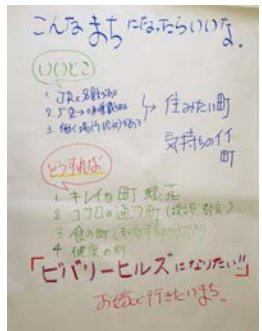 こんなまちになったらいいな。
いいとこ
1. JRと名鉄がある
2.
3. 働く場所(会社)がある
住みたい町
気持ちのイイ
町
どうすれば
1 キレイな町 緑、花
2 ココロの通う町(挨拶、
3 食の町
4 健康の町
「ビバリーヒルズになりたい!!」
お嫁に行きたいまち。